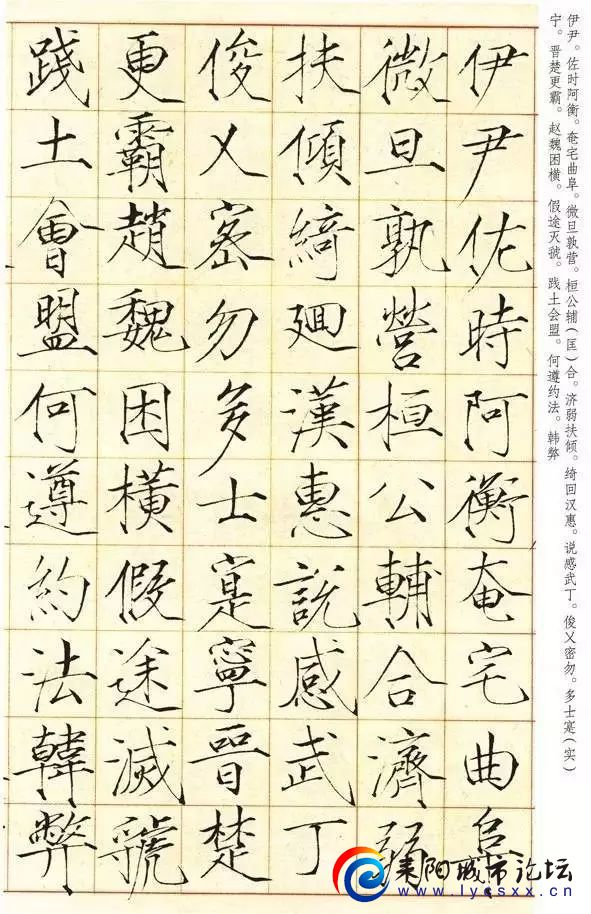 伊尹。佐时阿衡。奄宅曲阜。微旦孰营。桓公辅(匡)合。济弱扶倾。绮回汉惠。说感武丁。俊乂密勿。多士寔(实)
宁。晋楚更霸。赵魏困横。假途灭虢。践土会盟。何遵约法。韩弊
伊尹佐時阿衡奄宅曲阜
微旦孰營桓公輔合濟弱
扶傾綺廻漢惠說感武丁
俊乂密勿多士寔寧晉楚
更霸趙魏困橫假途滅虢
踐土會盟何遵約法韓弊
耒阳城市论坛
www.lycsxx.cn